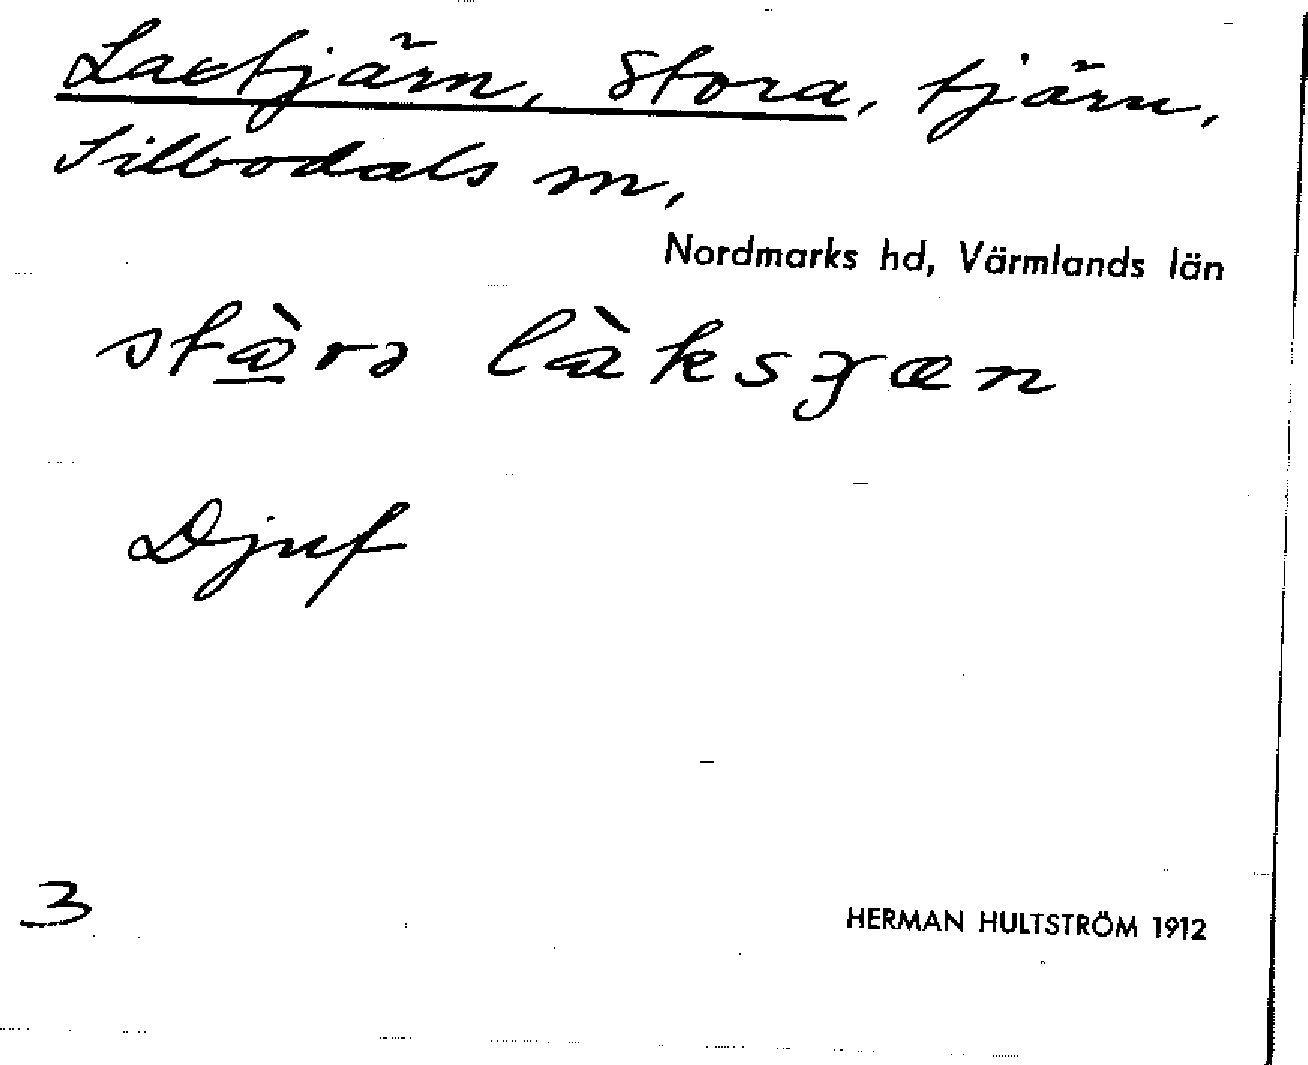 Laxtjärn, Stora, tjärn,
Silbodals sn,
Nordmarks hd, Värmlands län
stɑ̱̀rɔ làksȝæn
Djuf
3
HERMAN HULTSTRÖM 1912